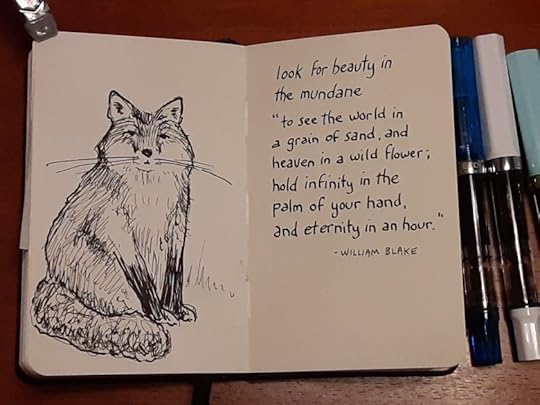 look for beauty in
the mundane
"to see the world in
a grain of sand, and
heaven in a wild flower;
hold infinity in the
palm of your hand,
and eternity in an hour."
-WILLIAM BLAKE